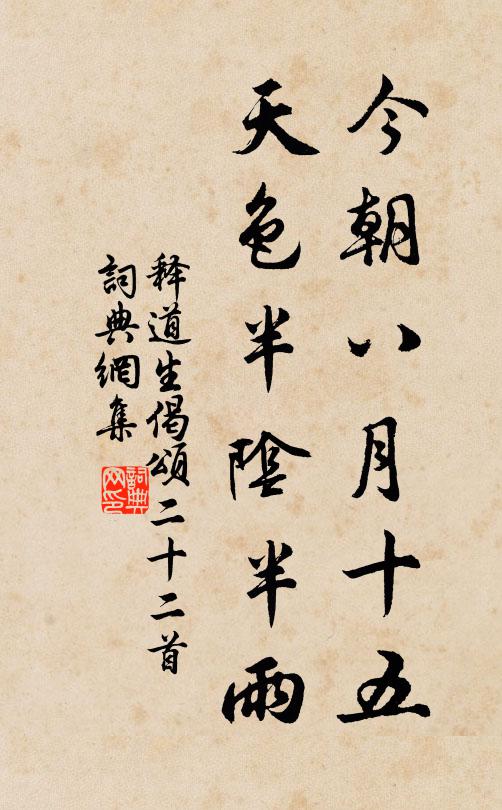 今朝八月十五
天色半陰半雨
释道生偈頌二十二首
詞典網集
詞典網印